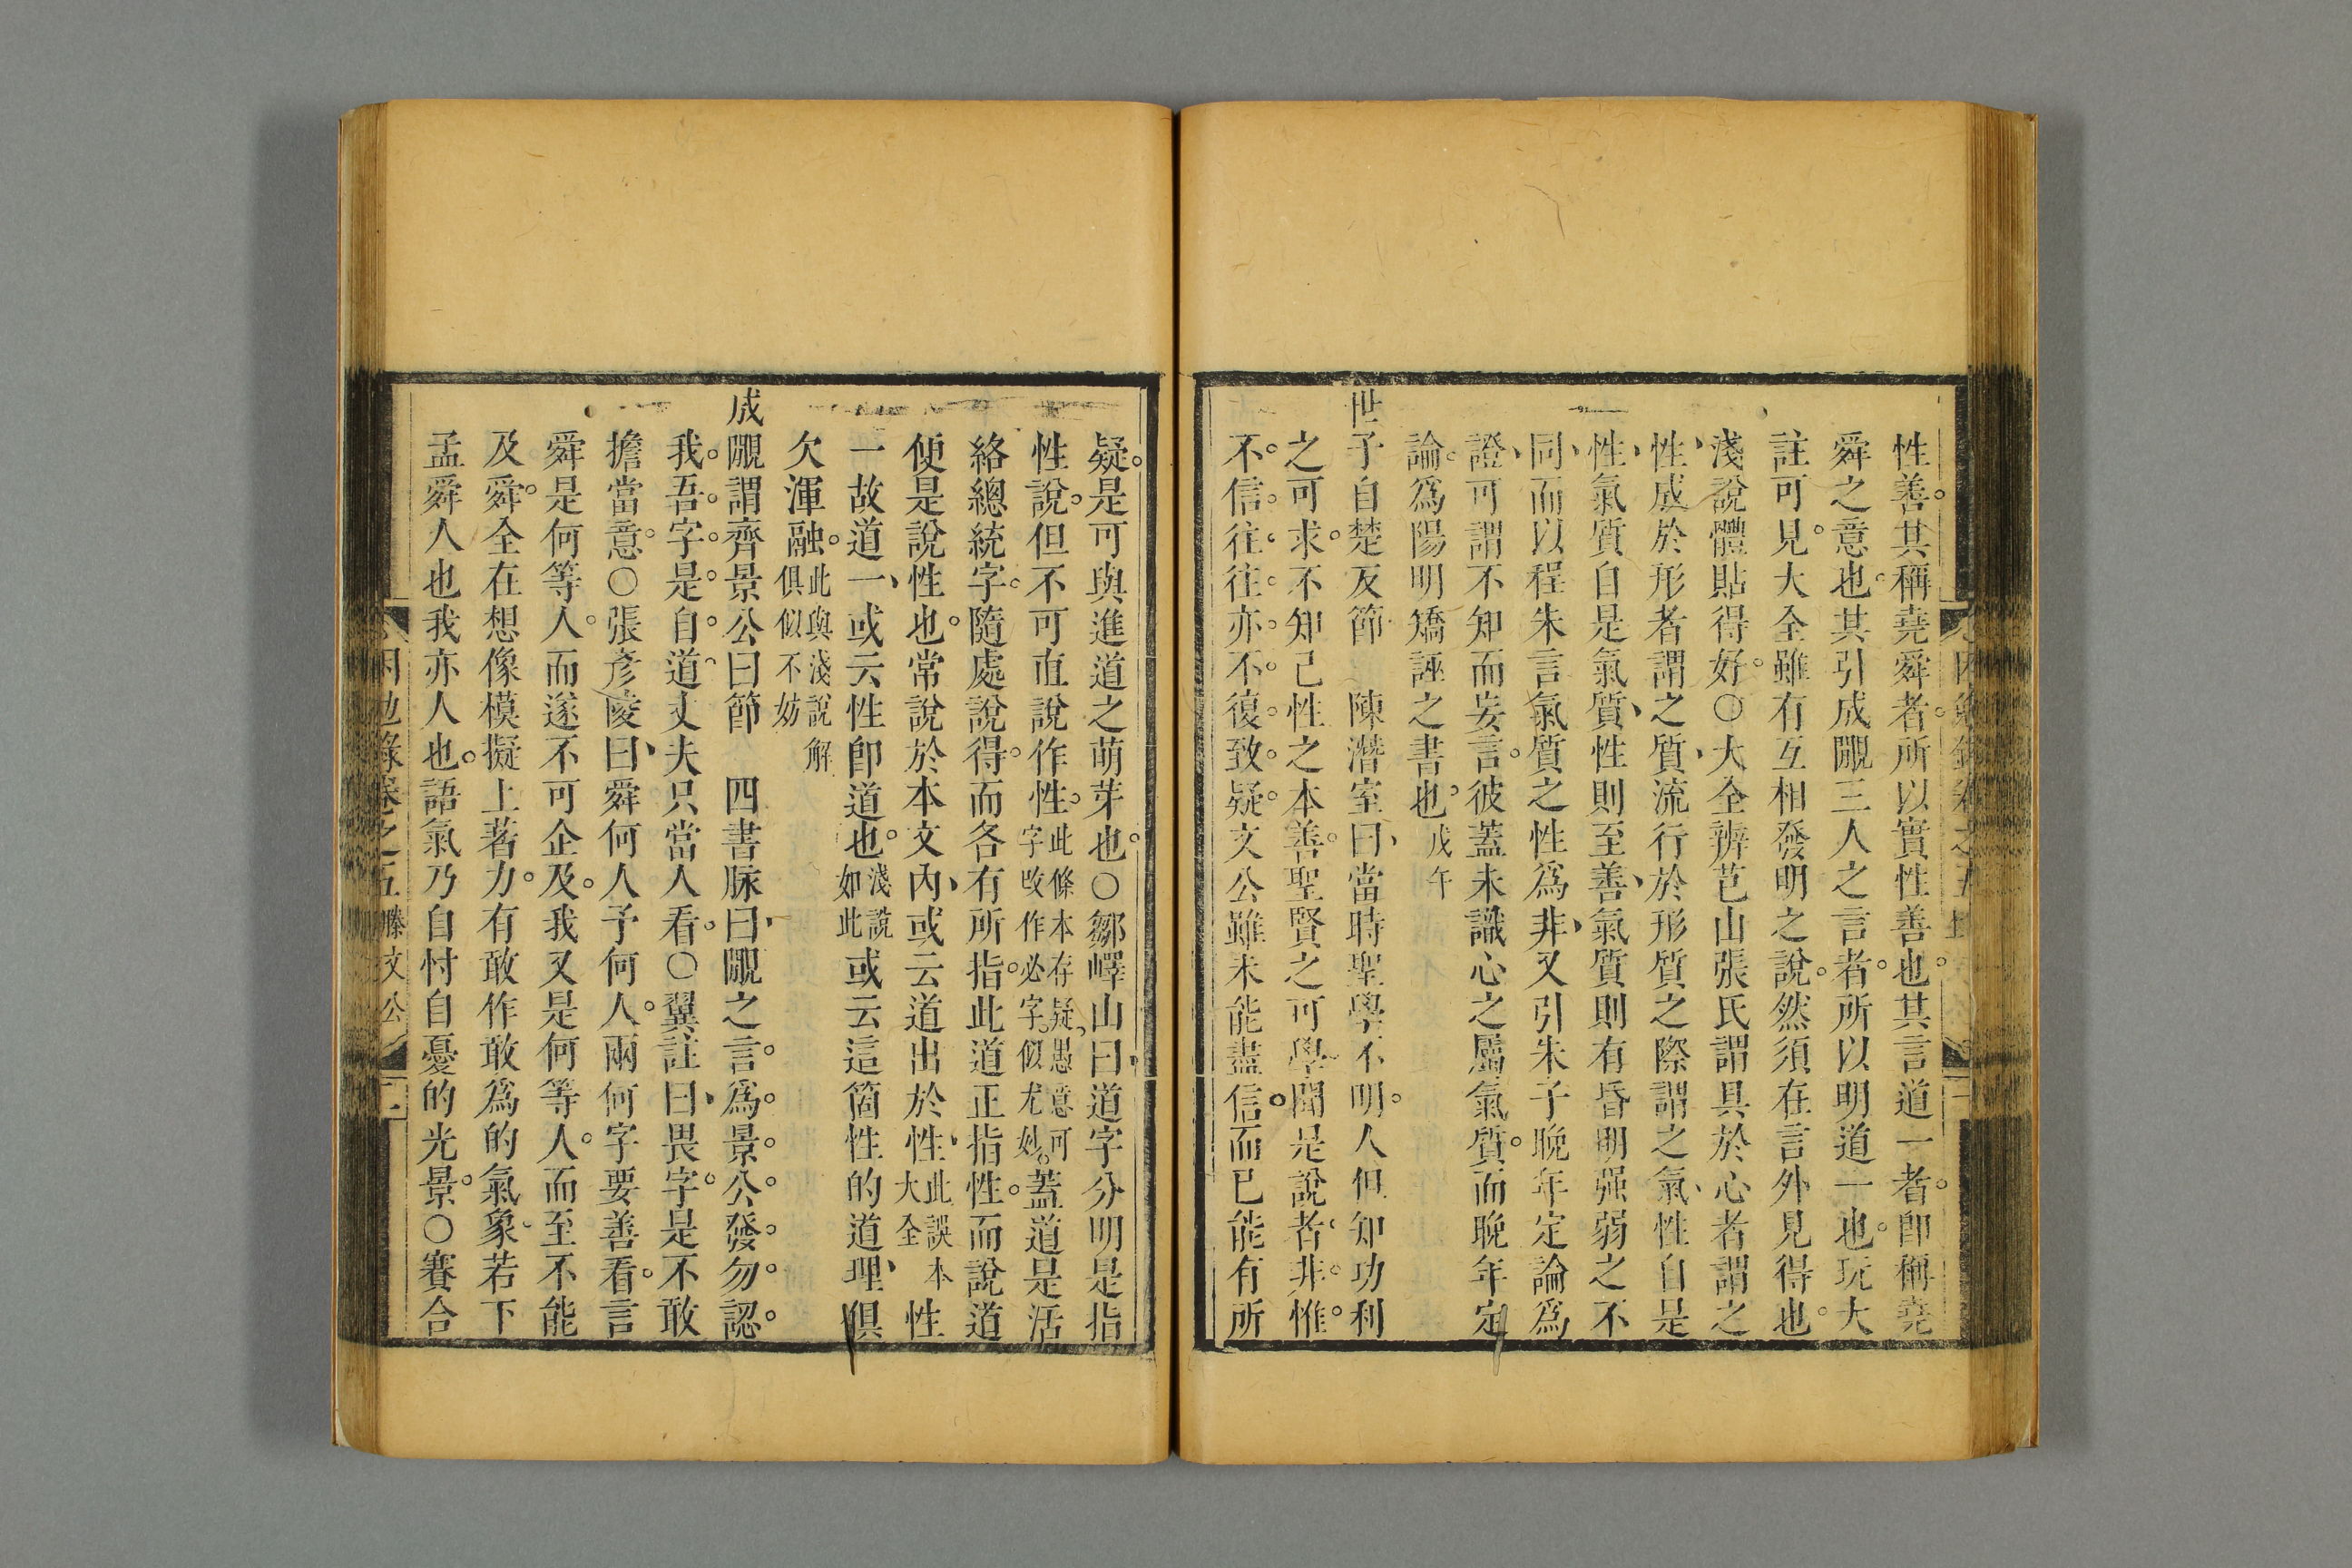 性善其稱堯舜者所以實性善也其言道一者卽稱堯
舜之意也其引成覸三人之言者所以明道一也玩大
註可見大全雖有互相發明之說然須在言外見得也
淺說體貼得好○大全辨芑山張氏謂具於心者謂之
性成於形者謂之質流行於形質之際謂之氣性自是
性氣質自是氣質性則至善氣質則有昏明强弱之不
同而以程朱言氣質之性爲非又引朱子晚年定論爲
證可謂不知而妄言彼蓋未識心之屬氣質而晚年定
論爲陽明矯誣之書也戊午
世子自楚反節 陳潛室曰當時聖學不明人但知功利
之可求不知己性之本善聖賢之可學聞是說者非惟
不信往往亦不復致疑文公雖未能盡信而已能有所
疑是可與進道之萌芽也○鄒嶧山曰道字分明是指
性說但不可直說作性此條本存疑愚意可字改作必字似尤妙蓋道是活
絡總統字隨處說得而各有所指此道正指性而說道
便是說性也常說於本文內或云道出於性此誤本大全性
一故道一或云性卽道也淺說如此或云這箇性的道理俱
欠渾融此與淺說解俱似不妨
成覸謂齊景公曰節 四書脉曰覸之言爲景公發勿認
我吾字是自道丈夫只當人看○翼註曰畏字是不敢
擔當意○張彥陵曰舜何人予何人兩何字要善看言
舜是何等人而遂不可企及我又是何等人而至不能
及舜全在想像模擬上著力有敢作敢爲的氣象若下
孟舜人也我亦人也語氣乃自忖自憂的光景○賽合
困勉錄卷之五 滕文公 二